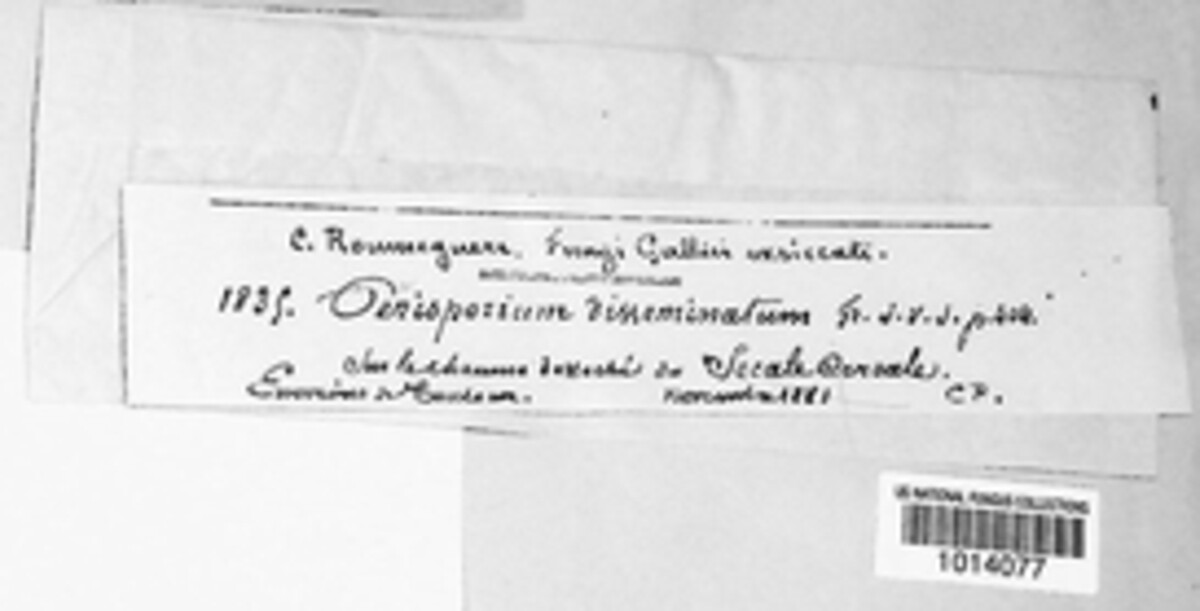 C. Roumeguere. Fungi Gallici exsiccati.
1835. Perisporium disseminatum Fr. S. V. S. p.
Sur le chaume desseché de Secale Cereale.
Environs de Toulouse. Novembre 1881 C R.
US NATIONAL FUNGUS COLLECTIONS
1014077